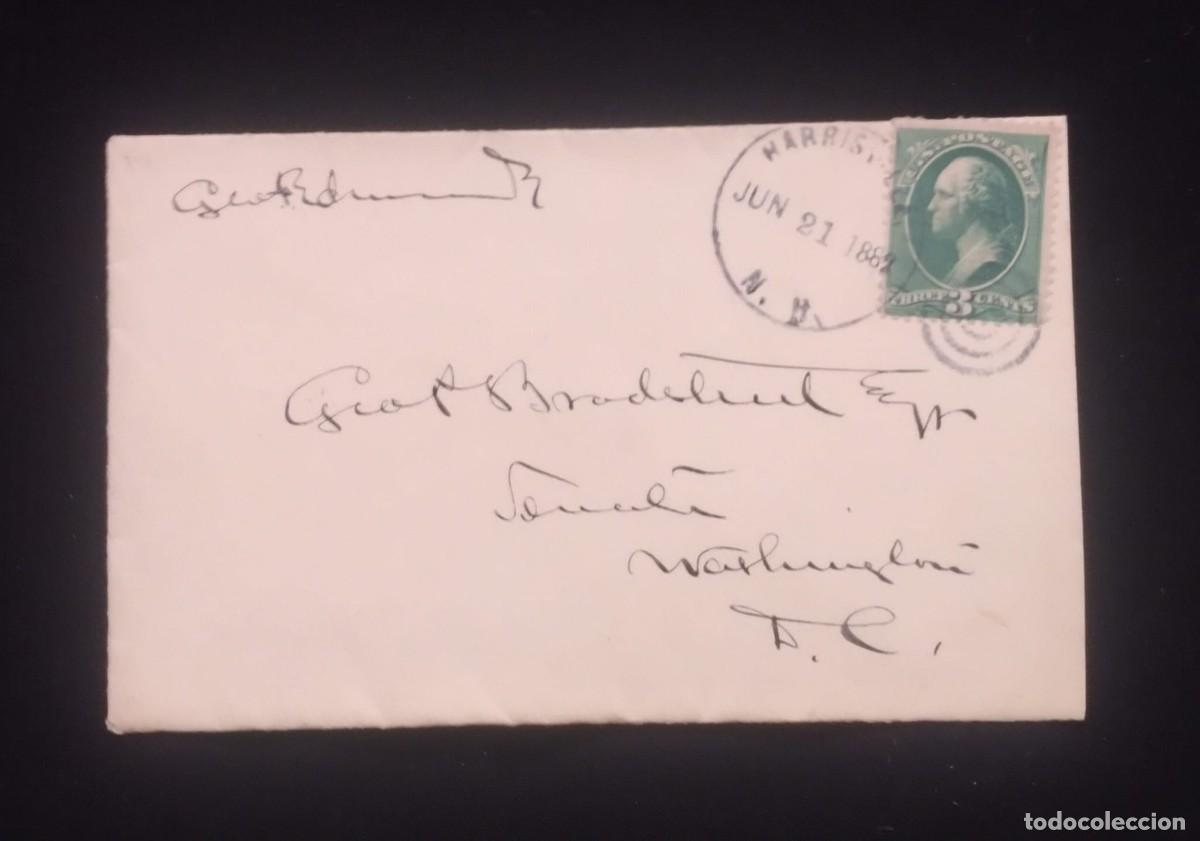 Geo F Edmunds
HARRISV
JUN 21 188
N. H.
U.S. POSTAGE
THREE 3 CENTS
Geo P Bradstreet Esqr
Senate
Washington
D. C.
todocoleccion